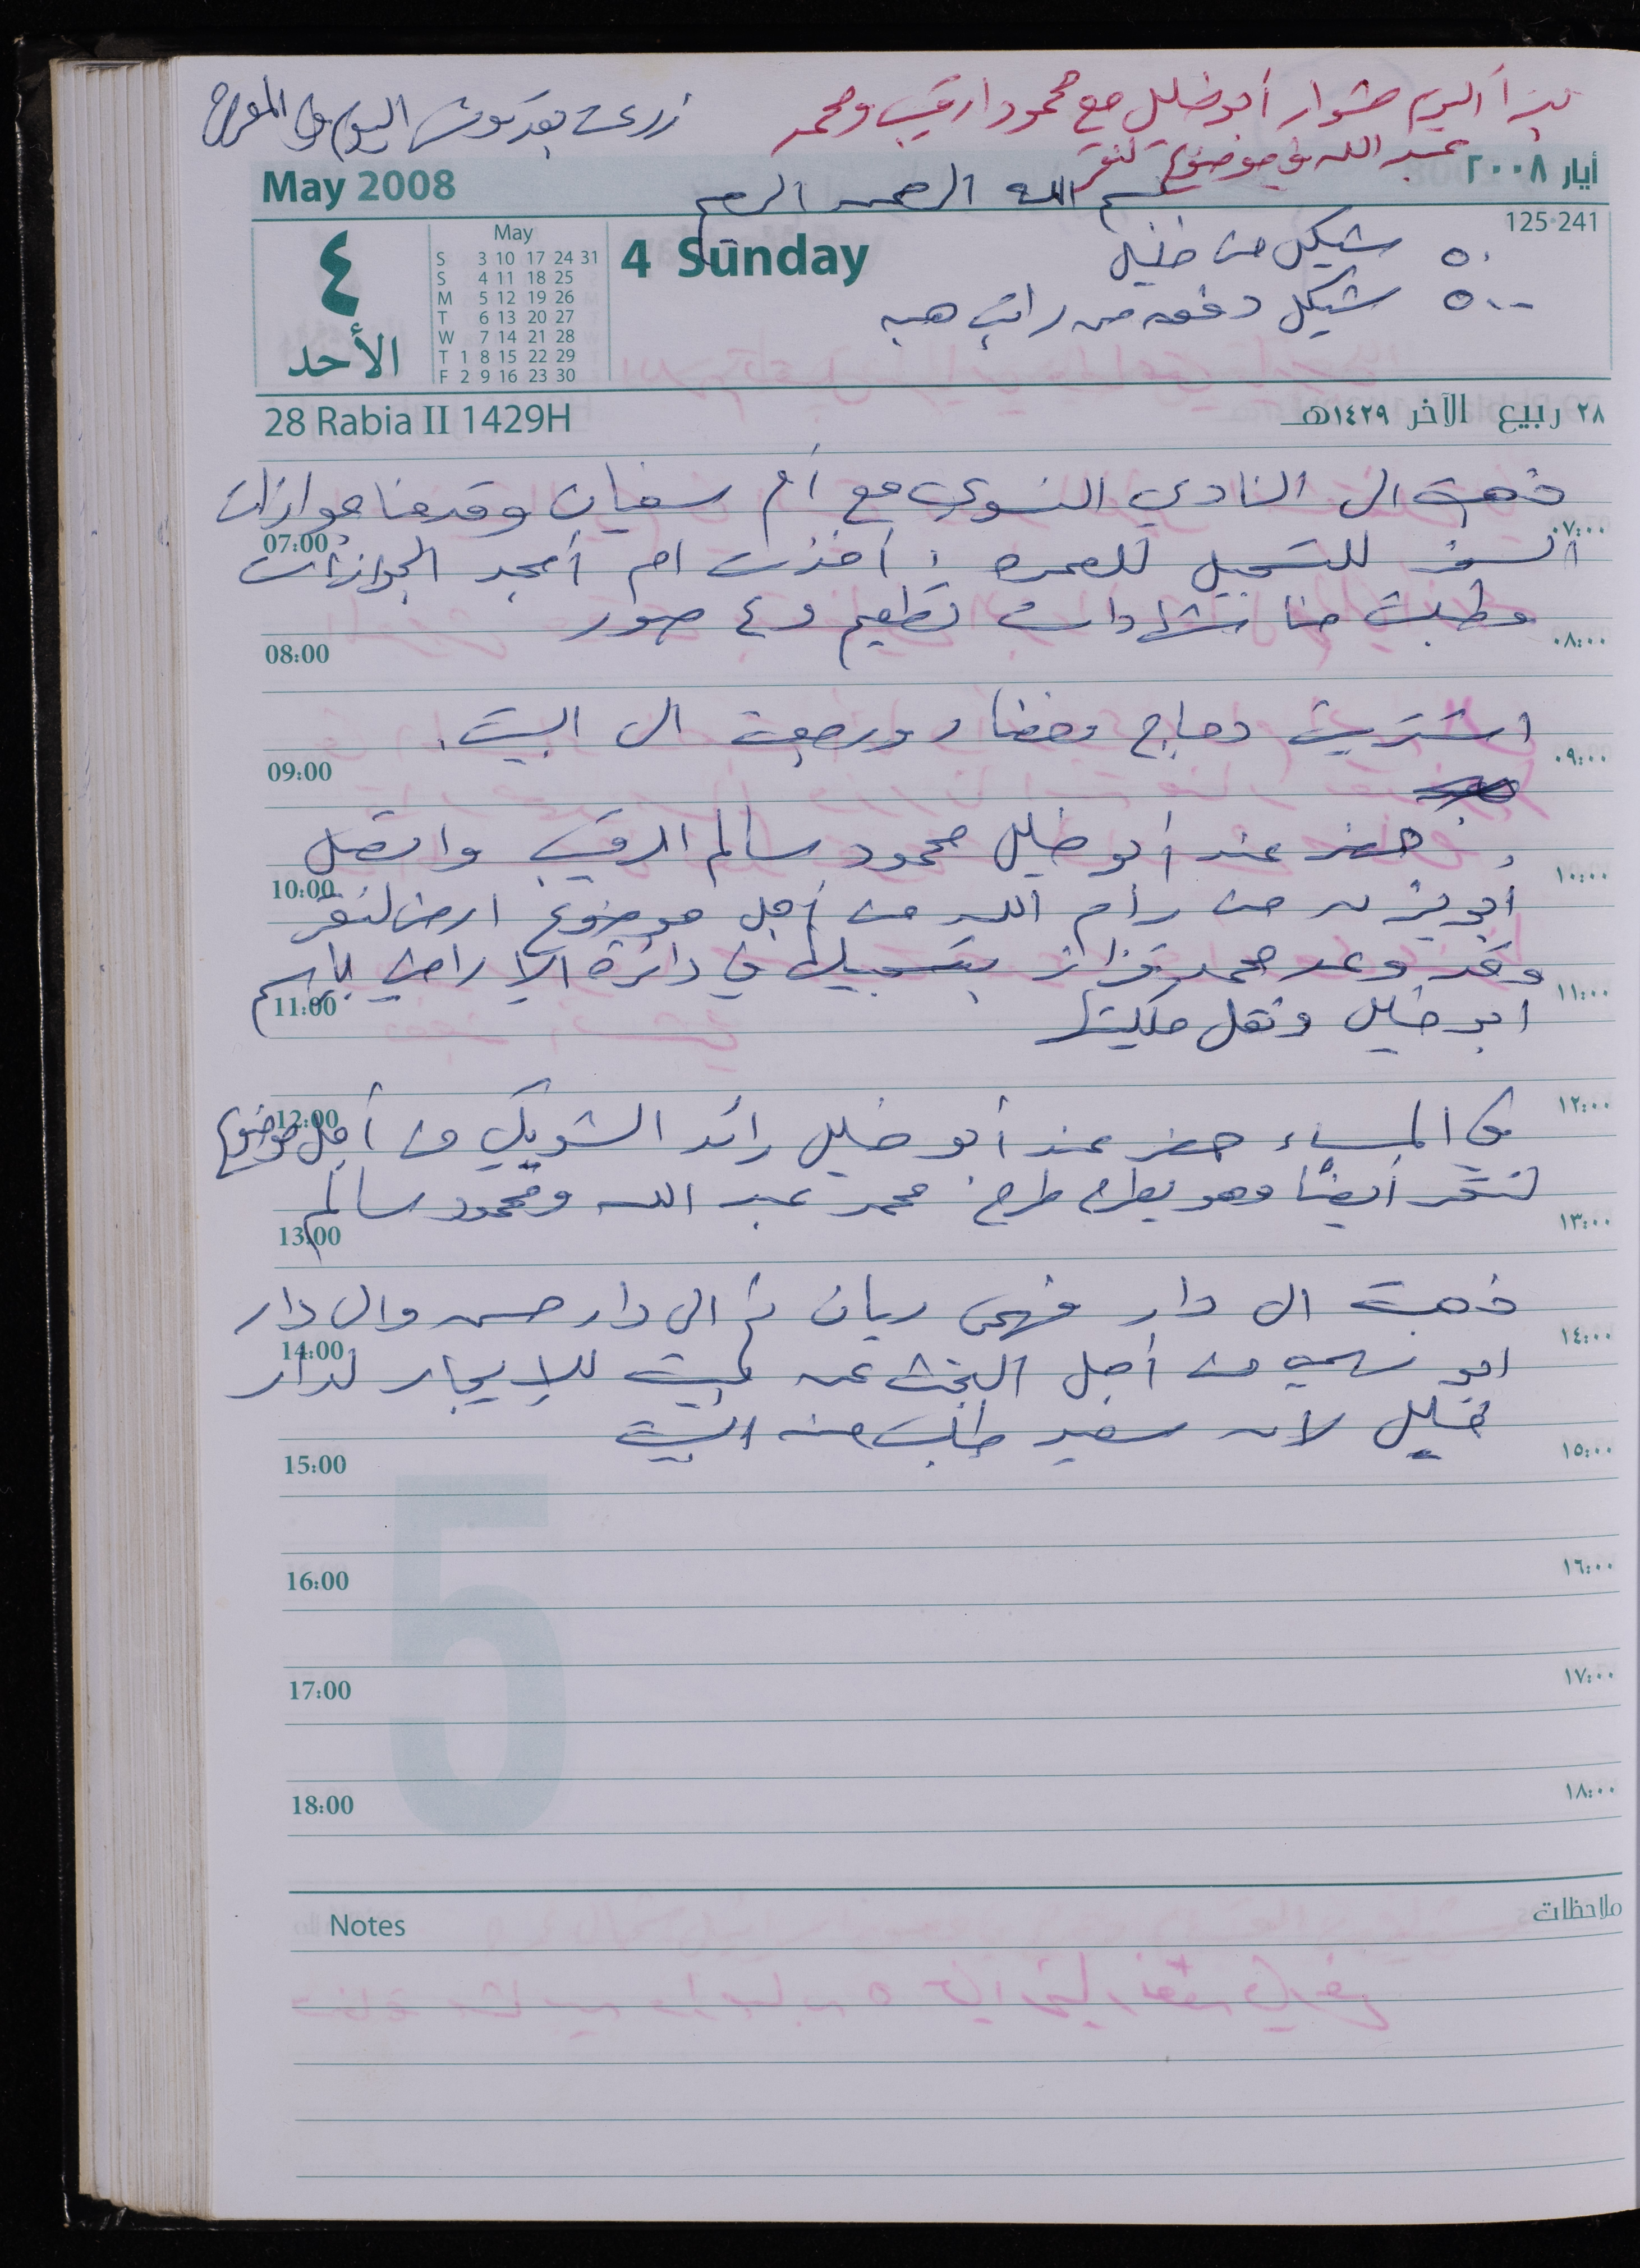 بدأ اليوم مشوار أبو خليل مع محمود الرقب ومحمد
عبد الله في موضوع لنقر
زرعت بقدونس اليوم في المعرش
May 2008
بسم الله الرحمن الرحيم
أيار ٢٠٠٨
125·241
٤
الأحد
May
S 3 10 17 24 31
S 4 11 18 25
M 5 12 19 26
T 6 13 20 27
W 7 14 21 28
T 1 8 15 22 29
F 2 9 16 23 30
4 Sunday
٥٠ شيكل من خليل
٥٠٠ شيكل دفعه من راتب هبه
28 Rabia II 1429H
٢٨ ربيع الآخر ١٤٢٩هـ
ذهبت الى النادي النسوي مع أم سفيان وقدمنا جوازات
07:00 ٠٧:٠٠
السفر للتسجيل للعمره ، أخذت ام أمجد الجوازات
وطلبت منا شهادات تطعيم و ٤ صور
08:00 ٠٨:٠٠
اشتريت دجاج وخضار ورجعت الى البيت.
09:00 ٠٩:٠٠
حضر عند أبو خليل محمود سالم الرقب واتصل
10:00 ١٠:٠٠
أبو من رام الله من أجل موضوع ارض لنقر
وقد وعد محمد بتسجيلها في دائرة الاراضي باسم
11:00 ١١:٠٠
ابو خليل ونقل ملكيتها
12:00 ١٢:٠٠
في المساء حضر عند أبو خليل رائد الشويكي من أجل موضوع
لنقر أيضًا وهو يطرح طرح محمد عبد الله ومحمود سالم
13:00 ١٣:٠٠
ذهبت الى دار فهمي ريان ثم الى دار حسن والى دار
14:00 ١٤:٠٠
ابو من أجل البحث عن بيت للإيجار لدار
خليل لان سعيد طلب منه البيت
15:00 ١٥:٠٠
16:00 ١٦:٠٠
17:00 ١٧:٠٠
18:00 ١٨:٠٠
5
Notes ملاحظات